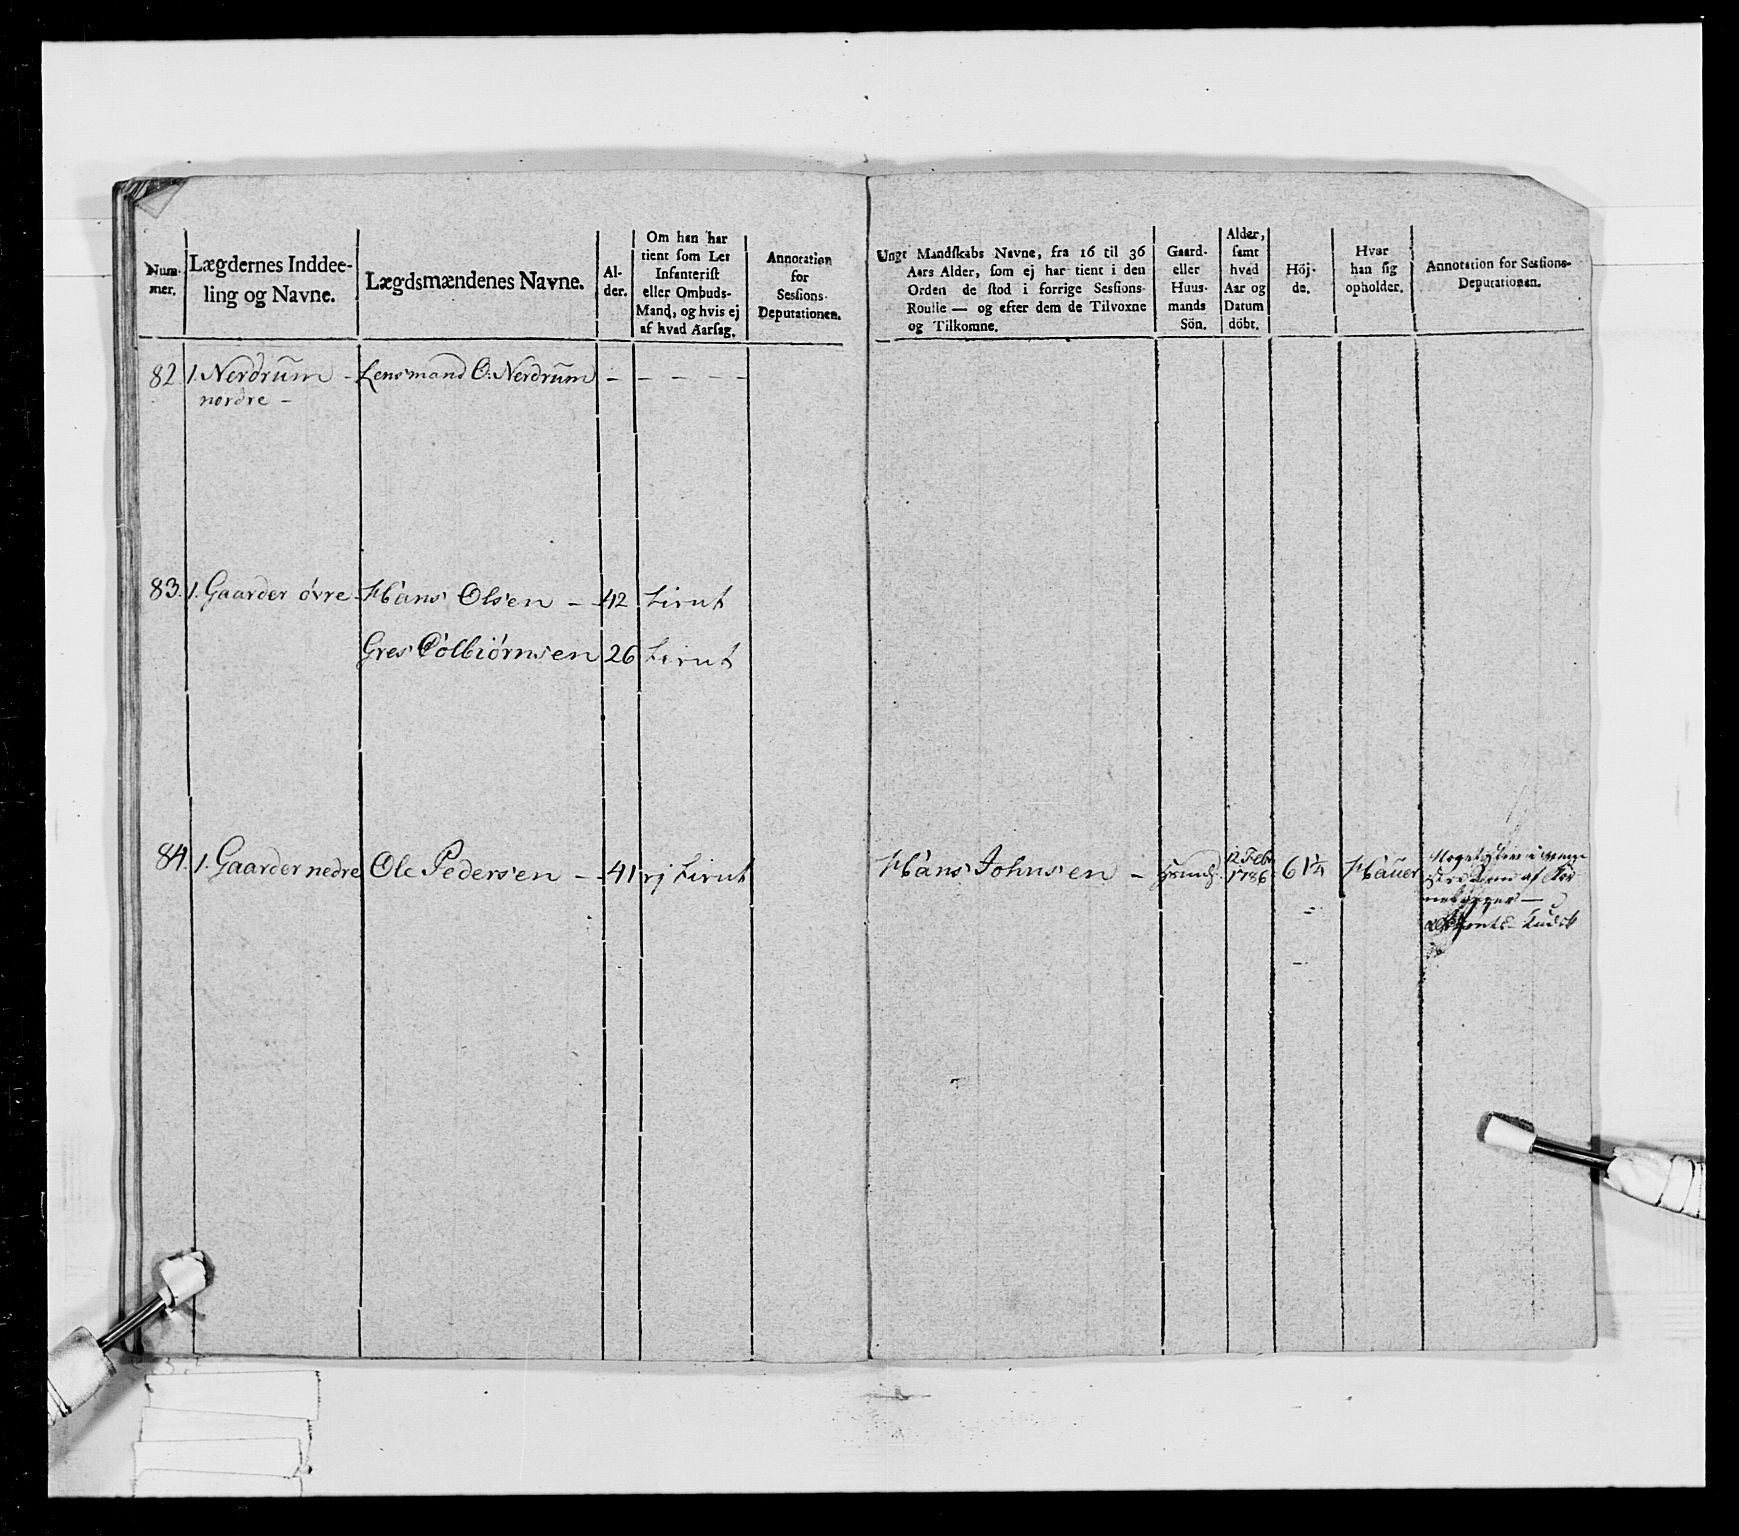 Num-
mer.
Lægdernes Inddee-
ling og Navne.
Lægdsmændenes Navne.
Al-
der.
Om han har
tient som Let
Infanterist
eller Ombuds-
Mand, og hvis ej
af hvad Aarsag.
Annotation
for
Sessions-
Deputationen.
Ungt Mandskabs Navne, fra 16 til 36
Aars Alder, som ej har tient i den
Orden de stod i forrige Sessions-
Roulle — og efter dem de Tilvoxne
og Tilkomne.
Gaard-
eller
Huus-
mands
Sön.
Alder,
samt
hvad
Aar og
Datum
döbt.
Höj-
de.
Hvor
han sig
opholder.
Annotation for Sessions-
Deputationen.
82. 1. Nerdrum - Lensmand O: Nerdrum - - - - -
nordre -
83. 1. Gaarder övre - Hans Olsen - 42
Gres Colbiörnsen 26
84. 1. Gaarder nedre Ole Pedersen - 41 Hans Johnsen - 12 Febr 1786 6 1/4